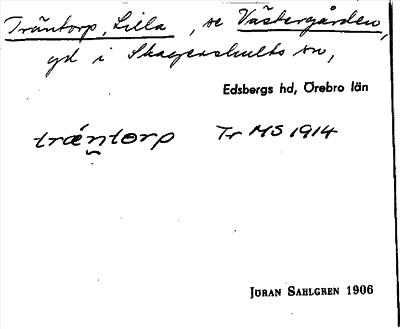 Träntorp, Lilla, se Västergården,
gd i Skagershults sn,
Edsbergs hd, Örebro län
träntorp Tr MS 1914
JÖRAN SAHLGREN 1906